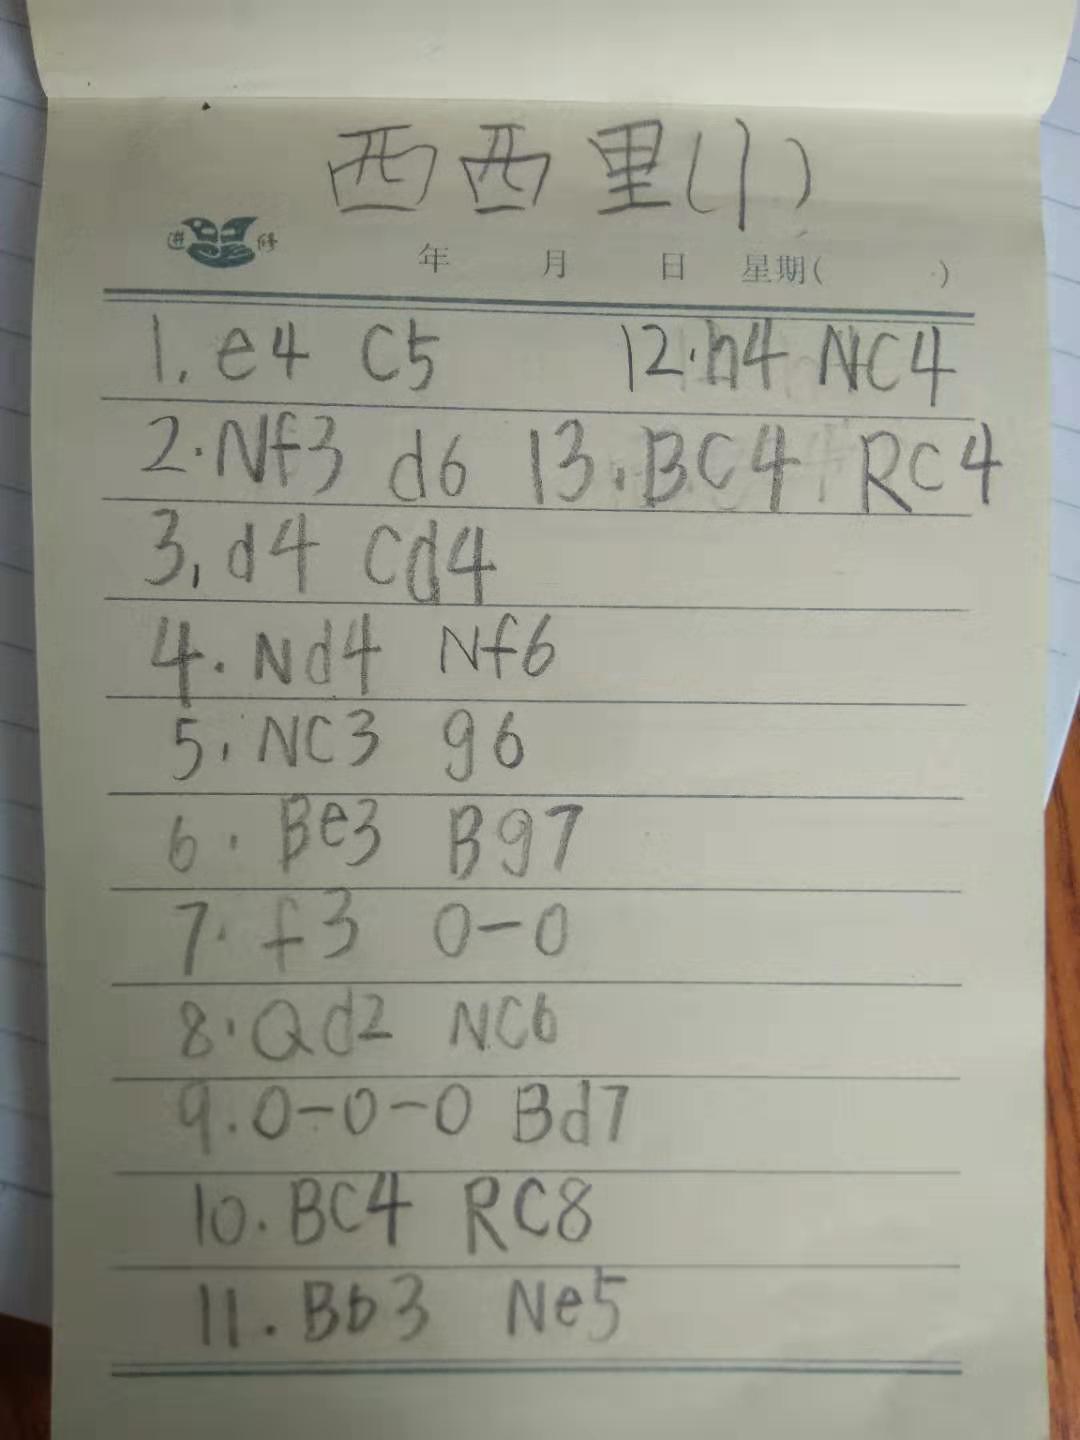 西西里(1)
进修
年 月 日 星期( )
1. e4 C5 12. h4 NC4
2. Nf3 d6 13. BC4 RC4
3. d4 Cd4
4. Nd4 Nf6
5. NC3 g6
6. Be3 Bg7
7. f3 0-0
8. Qd2 NC6
9. 0-0-0 Bd7
10. BC4 RC8
11. Bb3 Ne5